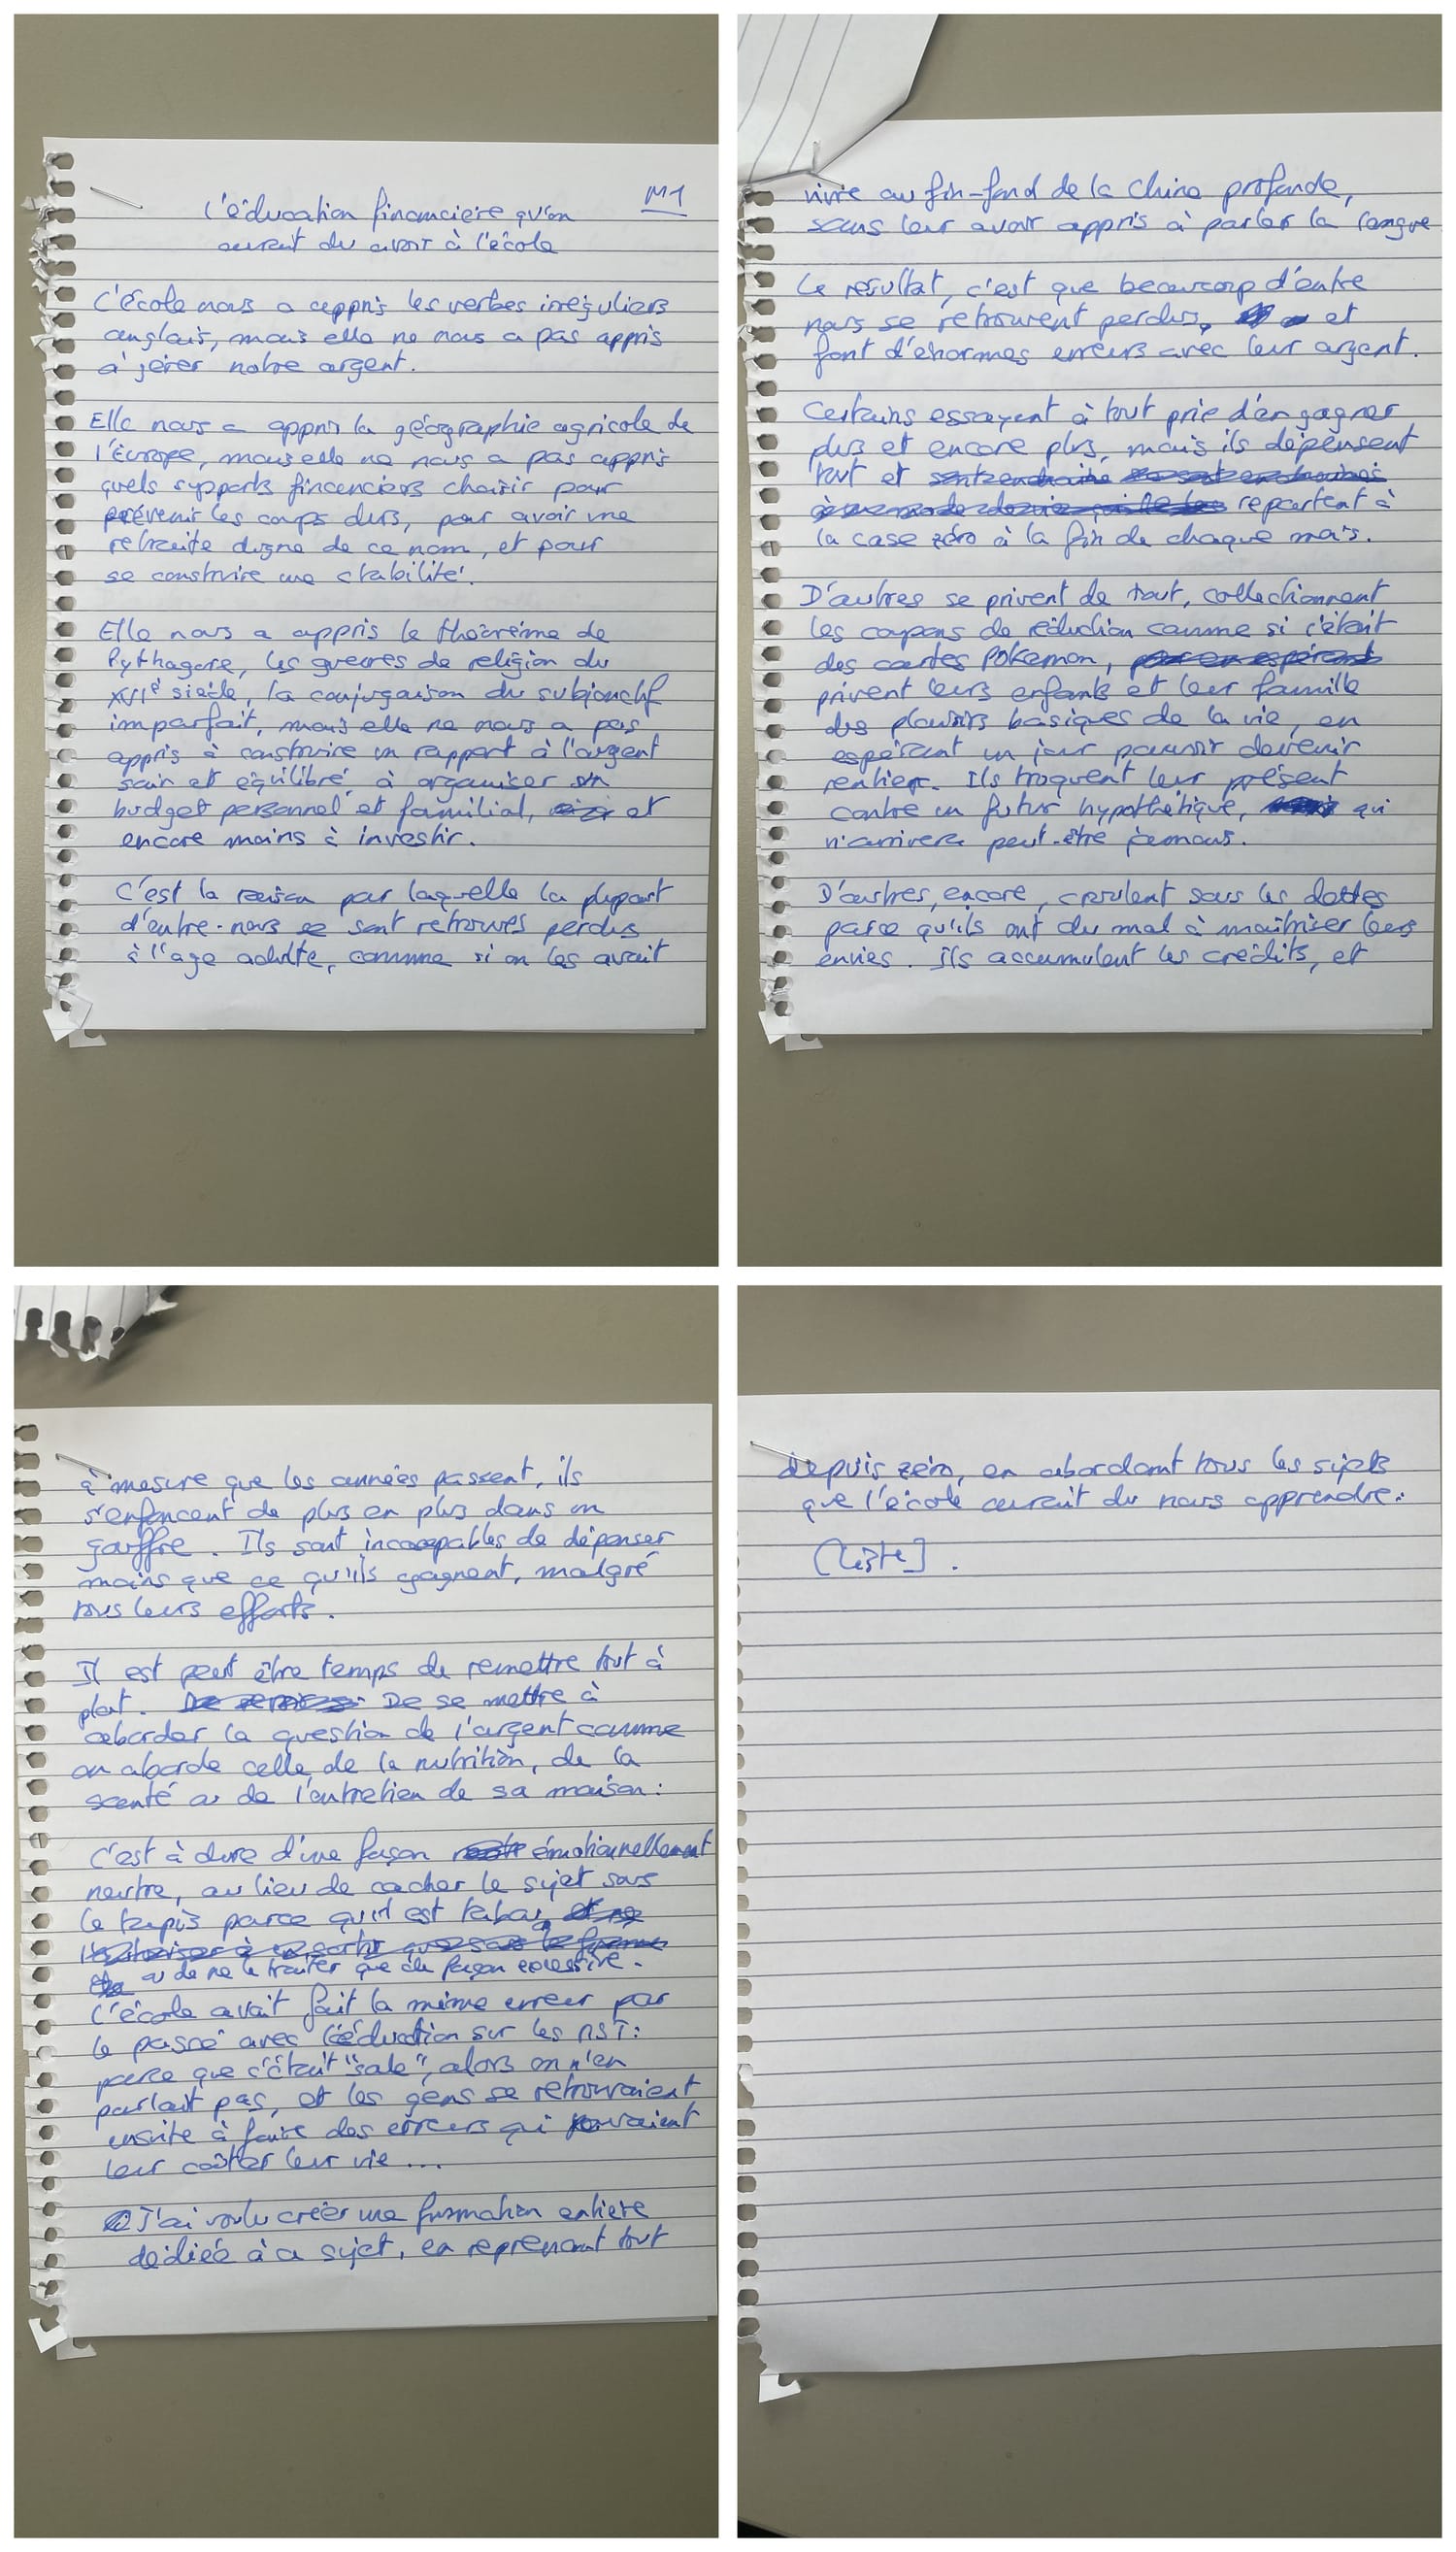 M1
L'éducation financière qu'on
aurait du avoir à l'école
L'école nous a appris les verbes irréguliers
anglais, mais elle ne nous a pas appris
à gérer notre argent.
Elle nous a appris la géographie agricole de
l'Europe, mais elle ne nous a pas appris
quels supports financiers choisir pour
prévenir les coups durs, pour avoir une
retraite digne de ce nom, et pour
se construire une stabilité.
Elle nous a appris le théorème de
Pythagore, les guerres de religion du
XVIe siècle, la conjugaison du subjonctif
imparfait, mais elle ne nous a pas
appris à construire un rapport à l'argent
sain et équilibré, à organiser un
budget personnel et familial, et
encore moins à investir.
C'est la raison par laquelle la plupart
d'entre-nous se sont retrouvés perdus
à l'age adulte, comme si on les avait
vivre au fin-fond de la Chine profonde,
sans leur avoir appris à parler la langue
Le résultat, c'est que beaucoup d'entre
nous se retrouvent perdus, et
font d'énormes erreurs avec leur argent.
Certains essayent à tout prix d'en gagner
plus et encore plus, mais ils dépensent
tout et repartent à
la case zéro à la fin de chaque mois.
D'autres se privent de tout, collectionnent
les coupons de réduction comme si c'était
des cartes Pokemon,
privent leurs enfants et leur famille
des plaisirs basiques de la vie, en
espérant un jour pouvoir devenir
rentier. Ils troquent leur présent
contre un futur hypothétique, qui
n'arrivera peut-être jamais.
D'autres, encore, croulent sous les dettes
parce qu'ils ont du mal à maîtriser leurs
envies. Ils accumulent les crédits, et
à mesure que les années passent, ils
s'enfoncent de plus en plus dans un
gouffre. Ils sont incapables de dépenser
moins que ce qu'ils gagnent, malgré
tous leurs efforts.
Il est peut être temps de remettre tout à
plat. De se mettre à
aborder la question de l'argent comme
on aborde celle de la nutrition, de la
santé ou de l'entretien de sa maison:
c'est à dire d'une façon émotionnellement
neutre, au lieu de cacher le sujet sous
le tapis parce qu'il est tabou,
ou de ne le traiter que de façon excessive.
L'école avait fait la même erreur par
le passé avec l'éducation sur les MST:
parce que c'était "sale", alors on n'en
parlait pas, et les gens se retrouvaient
ensuite à faire des erreurs qui pouvaient
leur coûter leur vie ...
J'ai voulu créer une formation entière
dédiée à ce sujet, en reprenant tout
depuis zéro, en abordant tous les sujets
que l'école aurait du nous apprendre:
[Liste].